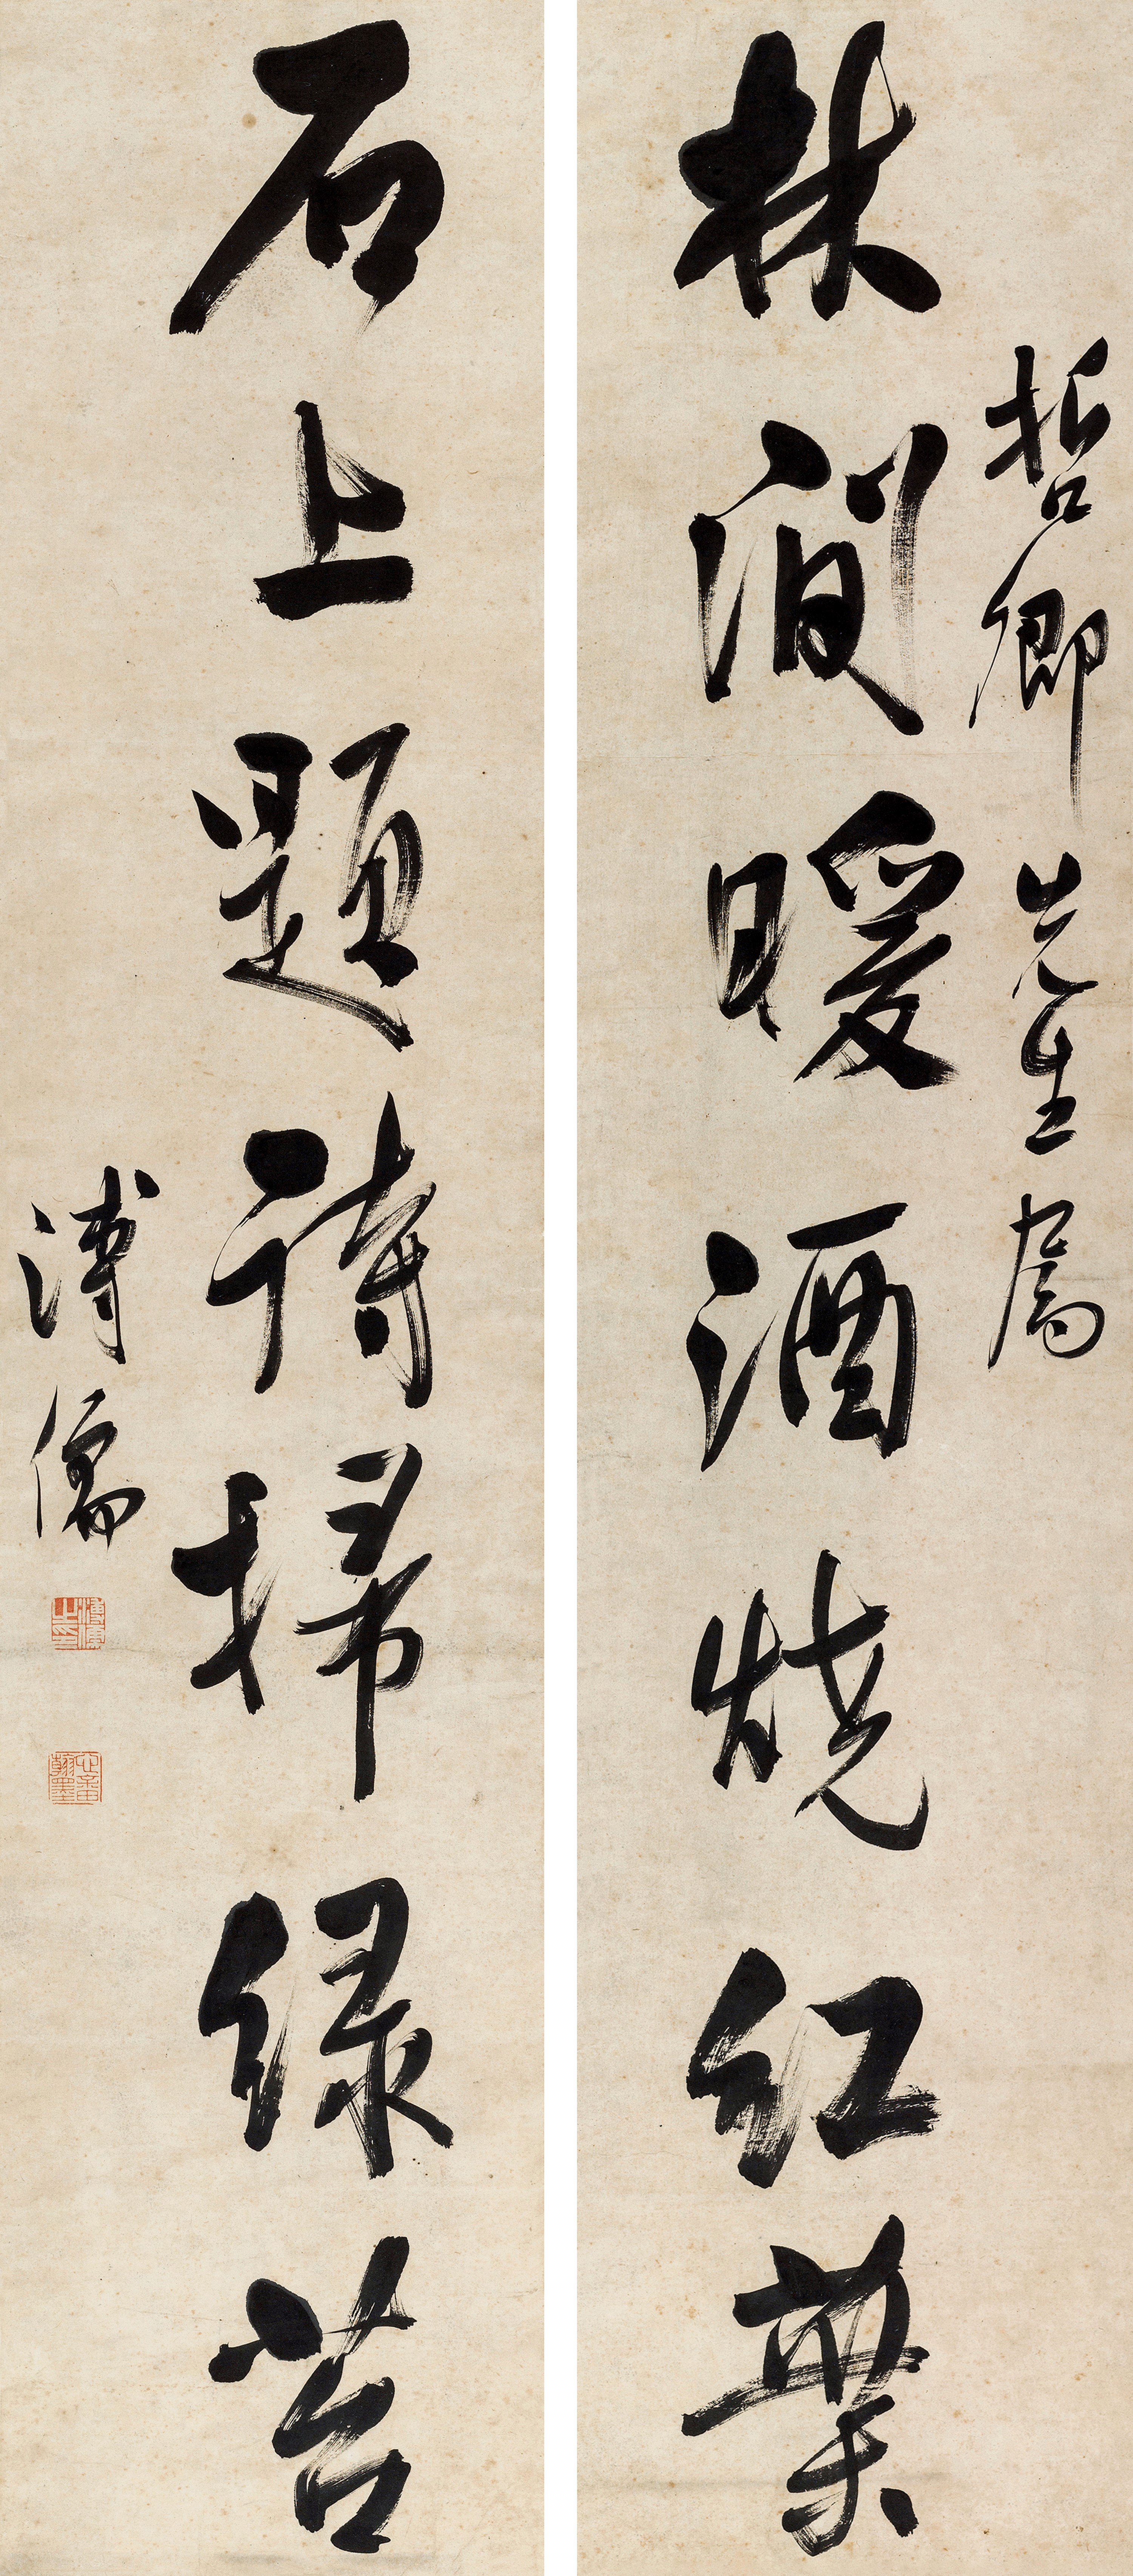 哲卿先生屬
林間暖酒燒紅葉
石上題詩掃綠苔
溥儒
溥儒之印